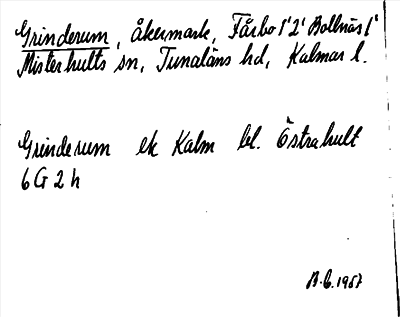 Grinderum, åkermark, Fårbo 1'2' Bollnäs 1'
Misterhults sn, Tunaläns hd, Kalmar l.
Grinderum ek Kalm bl. Östrahult
6 G 2 h
B.G. 1957